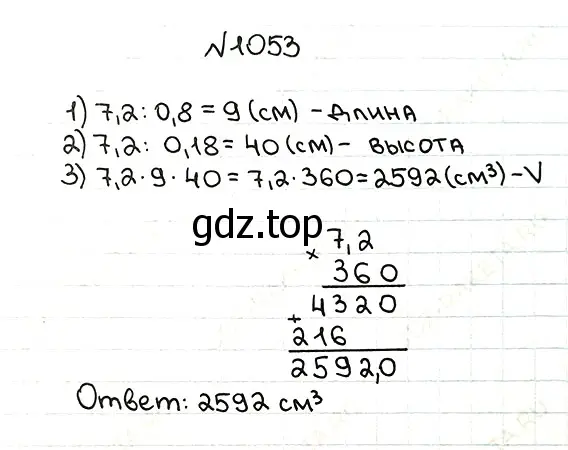 №1053
1) 7,2 : 0,8 = 9 (см) - длина
2) 7,2 : 0,18 = 40 (см) - высота
3) 7,2 · 9 · 40 = 7,2 · 360 = 2592 (см³) - V
gdz.top
× 7,2
360
4320
+
216
2592,0
Ответ: 2592 см³